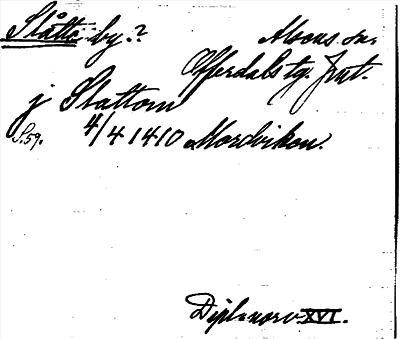 Slåtte by.? Alsens sn.
Offerdals tg. Jmt.
j Slattom
S.59. 4/4 1410 Mordviken.
Dipl. norv. XVI.